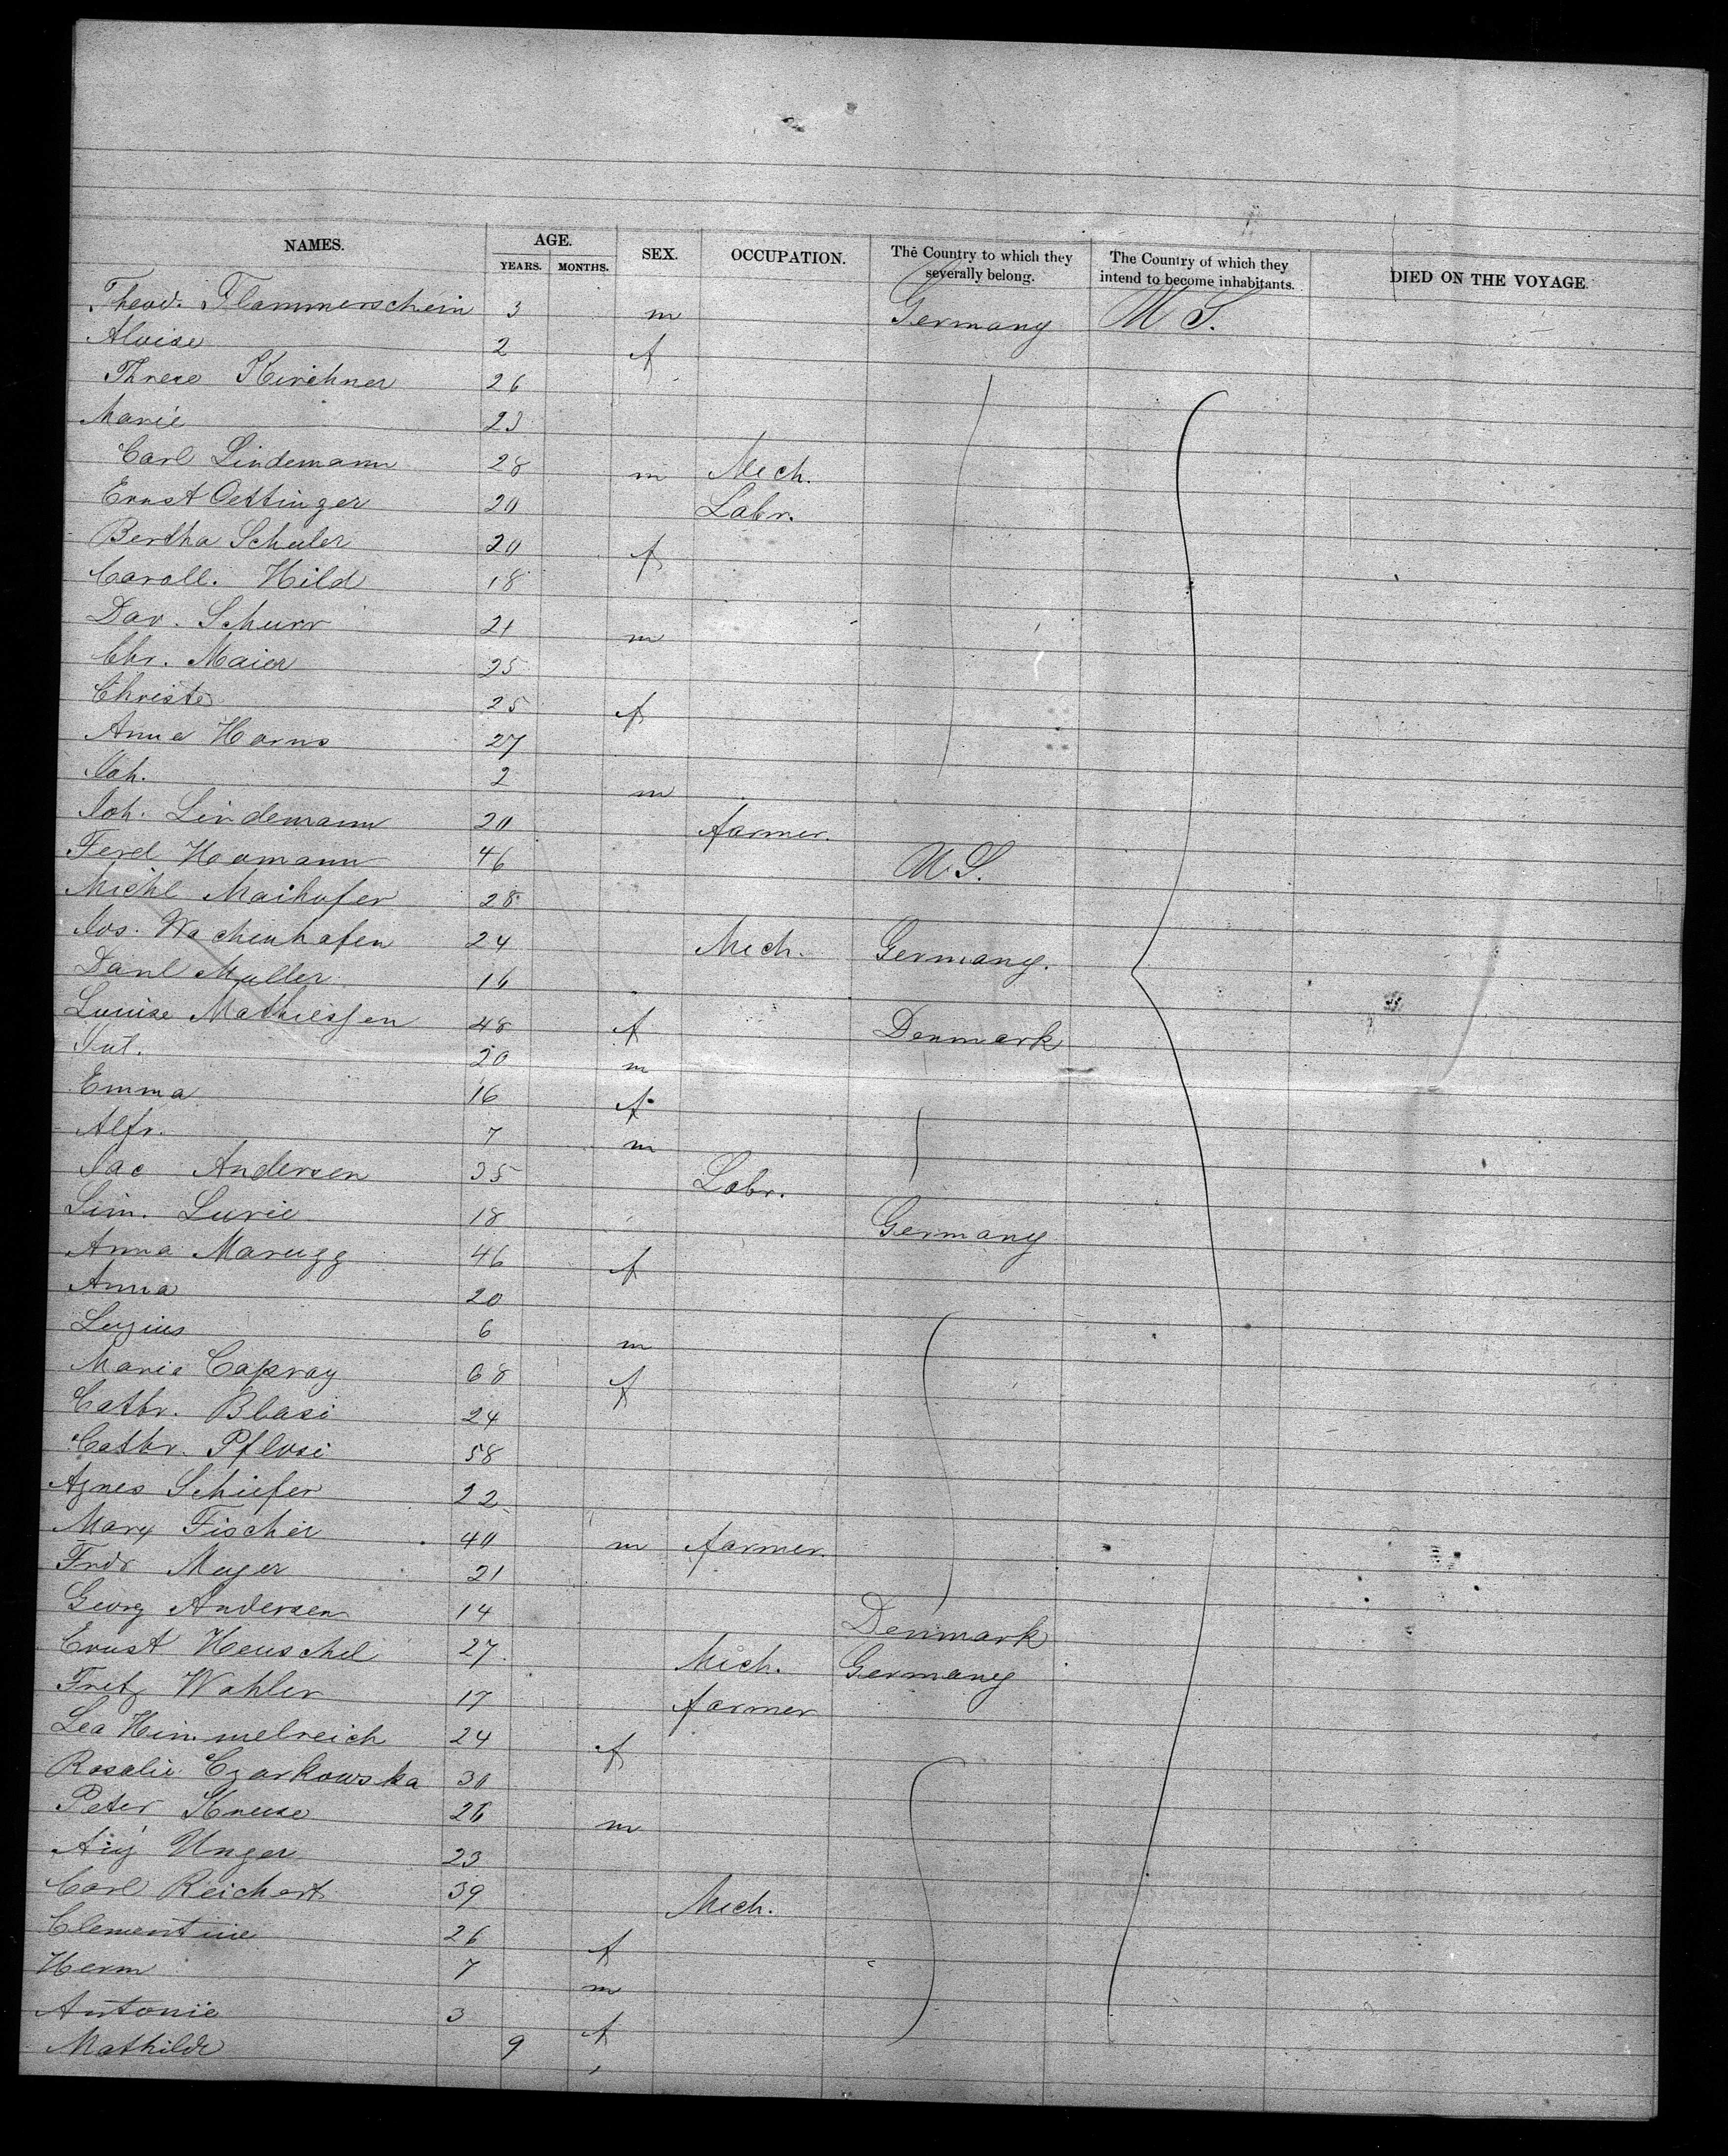 NAMES. AGE. SEX. OCCUPATION. The Country to which they severally belong. The Country of which they intend to become inhabitants. DIED ON THE VOYAGE.
YEARS. MONTHS.
Theod. Flammerschein 3 m Germany U S.
Aloise 2 f
Threse Kirchner 26
Marie 23
Carl Lindemann 28 m Mech.
Ernst Oettinger 20 Labr.
Bertha Schuler 20 f
Caroll. Hild 18
Dav. Schurr 21 m
Chr. Maier 25
Christe 25 f
Anna Harns 27
Joh. 2 m
Joh. Lindemann 20 farmer.
Ferd Homann 46 U.S.
Michl Maihofer 28
Jos. Wachenhafen 24 Mech. Germany.
Danl Muller 16
Louise Mathiessen 48 f Denmark
Jul. 20 m
Emma 16 f
Alfr. 7 m
Jac Andersen 35 Labr.
Sim. Lurie 18 Germany
Anna Marugg 46 f
Anna 20
Luzius 6 m
Maria Capray 68 f
Cathr. Blasi 24
Cathr. Pflosi 58
Agnes Schiefer 22
Marx Fischer 40 m farmer.
Frdr Meyer 21
Georg Andersen 14 Denmark
Ernst Heuschel 27 Mech. Germany
Fritz Wahler 17 farmer
Lea Himmelreich 24 f
Rosalie Czarkowska 30
Peter Kruse 26 m
Aug Unger 23
Carl Reichert 39 Mech.
Clementine 26 f
Herm 7 m
Antonie 3 f
Mathilde 9